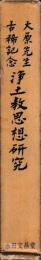 大原先生
古稀記念
浄土教思想研究
永田文昌堂